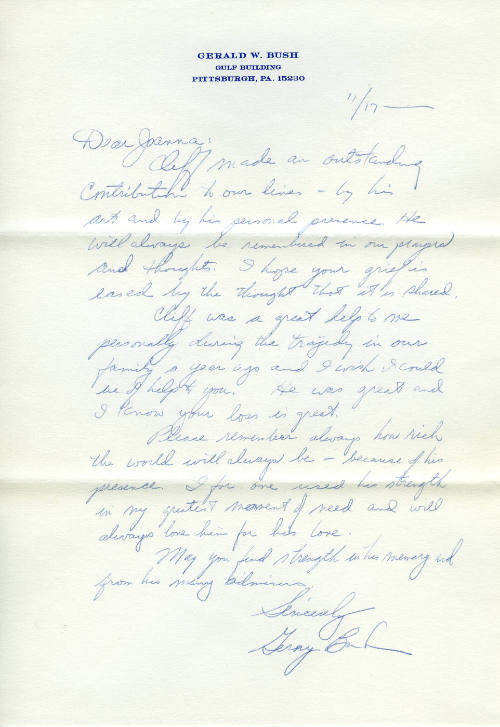 GERALD W. BUSH
GULF BUILDING
PITTSBURGH, PA. 15230
11/17
Dear Joanna:
Cliff made an outstanding
contribution to our lives – by his
art and by his personal presence. He
will always be remembered in our prayers
and thoughts. I hope your grief is
eased by the thought that it is shared.
Cliff was a great help to me
personally during the tragedy in our
family a year ago and I wish I could
be of help to you. He was great and
I know your loss is great.
Please remember always how rich
the world will always be – because of his
presence. I for one used his strength
in my greatest moment of need and will
always love him for his love.
May you find strength in his memory and
from his many admirers.
Sincerely
Gerry Bush